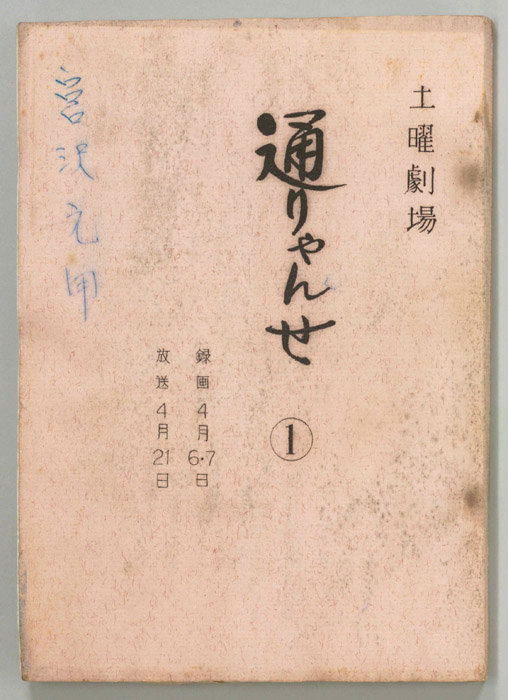 土曜劇場
通りゃんせ
①
録画4月6・7日
放送4月21日
宮沢元甲